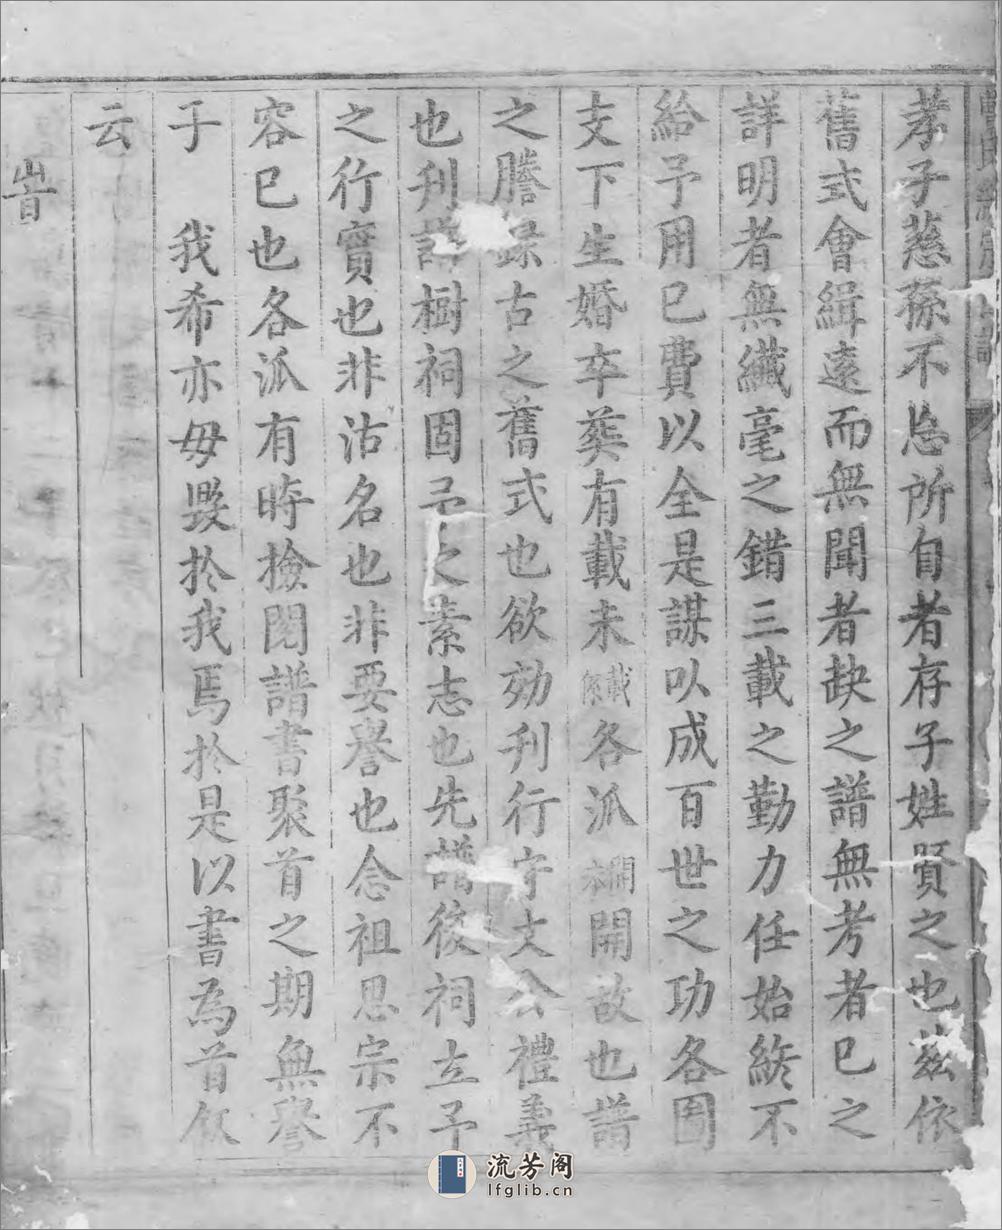 孝子慈孫不忘所自者存子姓賢之也茲依
舊式會緝遠而無聞者缺之譜無考者已之
詳明者無纖毫之錯三載之勤力任始終不
給予用已費以全是謀以成百世之功各圖
支下生婚卒葬有載未載係各派開本開故也譜
之謄錄古之舊式也欲効刊行守文公禮義
也刊譜樹祠固予之素志也先譜後祠立予
之行實也非沽名也非要譽也念祖思宗不
容已也各派有時撿閱譜書聚首之期無譽
于 我希亦毋毀於我焉於是以書為首叙
云
旹
流芳阁
lfglib.cn